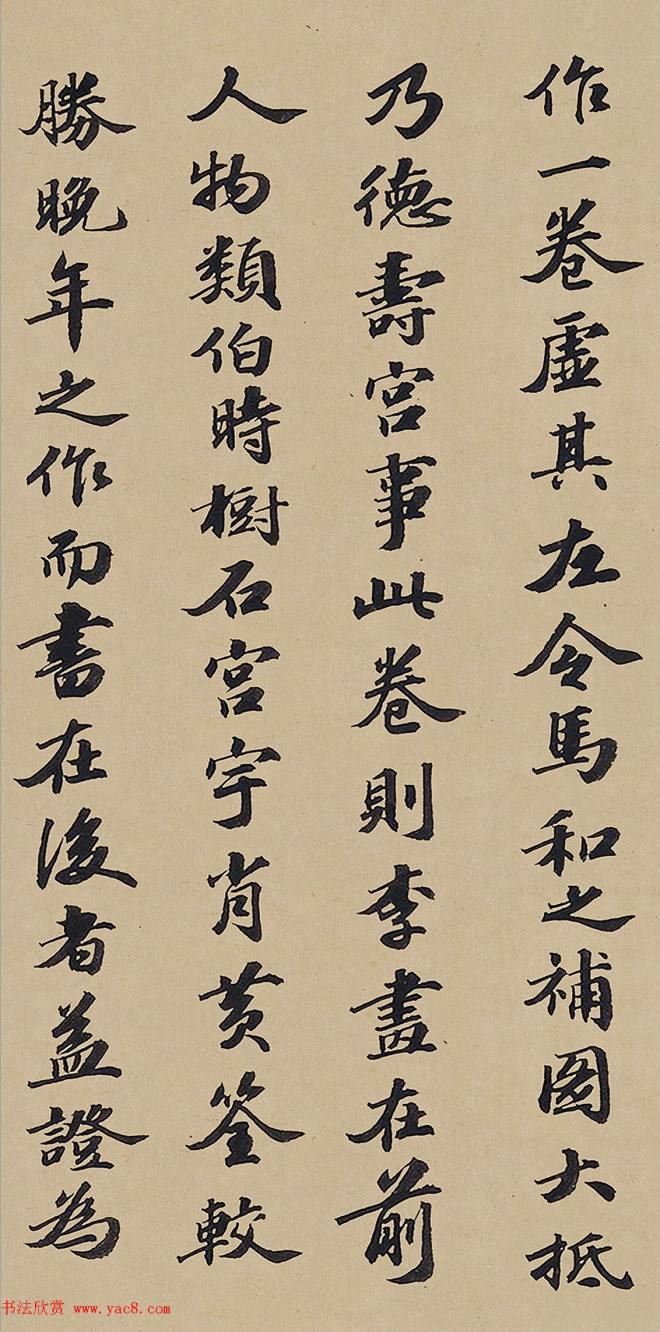 作一卷虛其左令馬和之補圖大抵
乃德壽宮事此卷則李畫在前
人物類伯時樹石宮宇肖黄筌較
勝晚年之作而書在後者蓋證為
书法欣赏 www.yac8.com